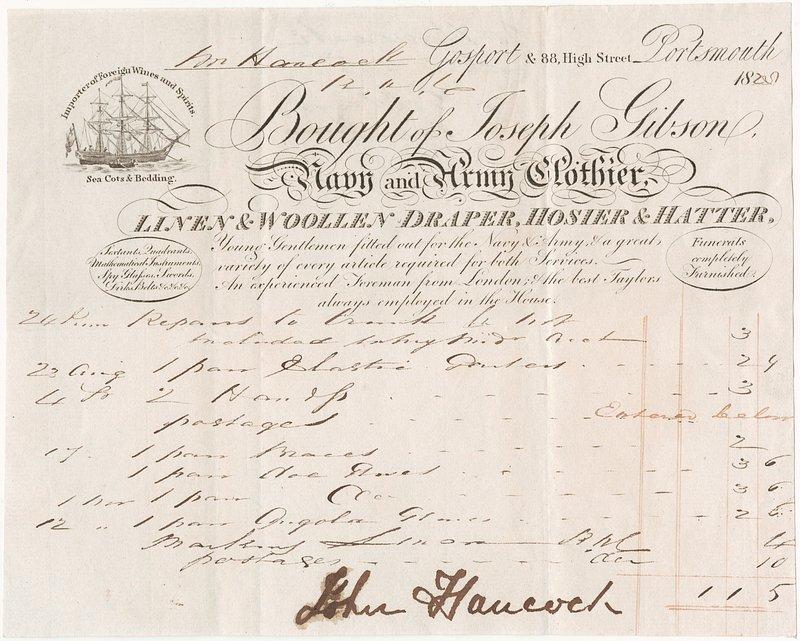 Mr Hancock Gosport & 88, High Street Portsmouth
182
Importer of Foreign Wines and Spirits.
Sea Cots & Bedding.
Bought of Joseph Gibson,
Navy and Army Clothier,
LINEN & WOOLLEN DRAPER, HOSIER & HATTER,
Sextants, Quadrants,
Mathematical Instruments,
Spy Glasses, Swords,
Dirks, Belts &c. &c. &c.
Young Gentlemen fitted out for the Navy & Army, & a great
variety of every article required for both Services.
An experienced Foreman from London, & the best Taylors
always employed in the House.
Funerals
completely
Furnished
Repairs to Trunk &
included 3
23 Aug 1 pair Elastic 2 9
4 2 3
postages Entered below
17 1 pair Braces 2
1 pair doe 3 6
1 Nov 1 pair Do 3 6
12 " 1 pair Angola Gloves 2 6
Marking Linen 4
postages 10
1 1 5
John Hancock